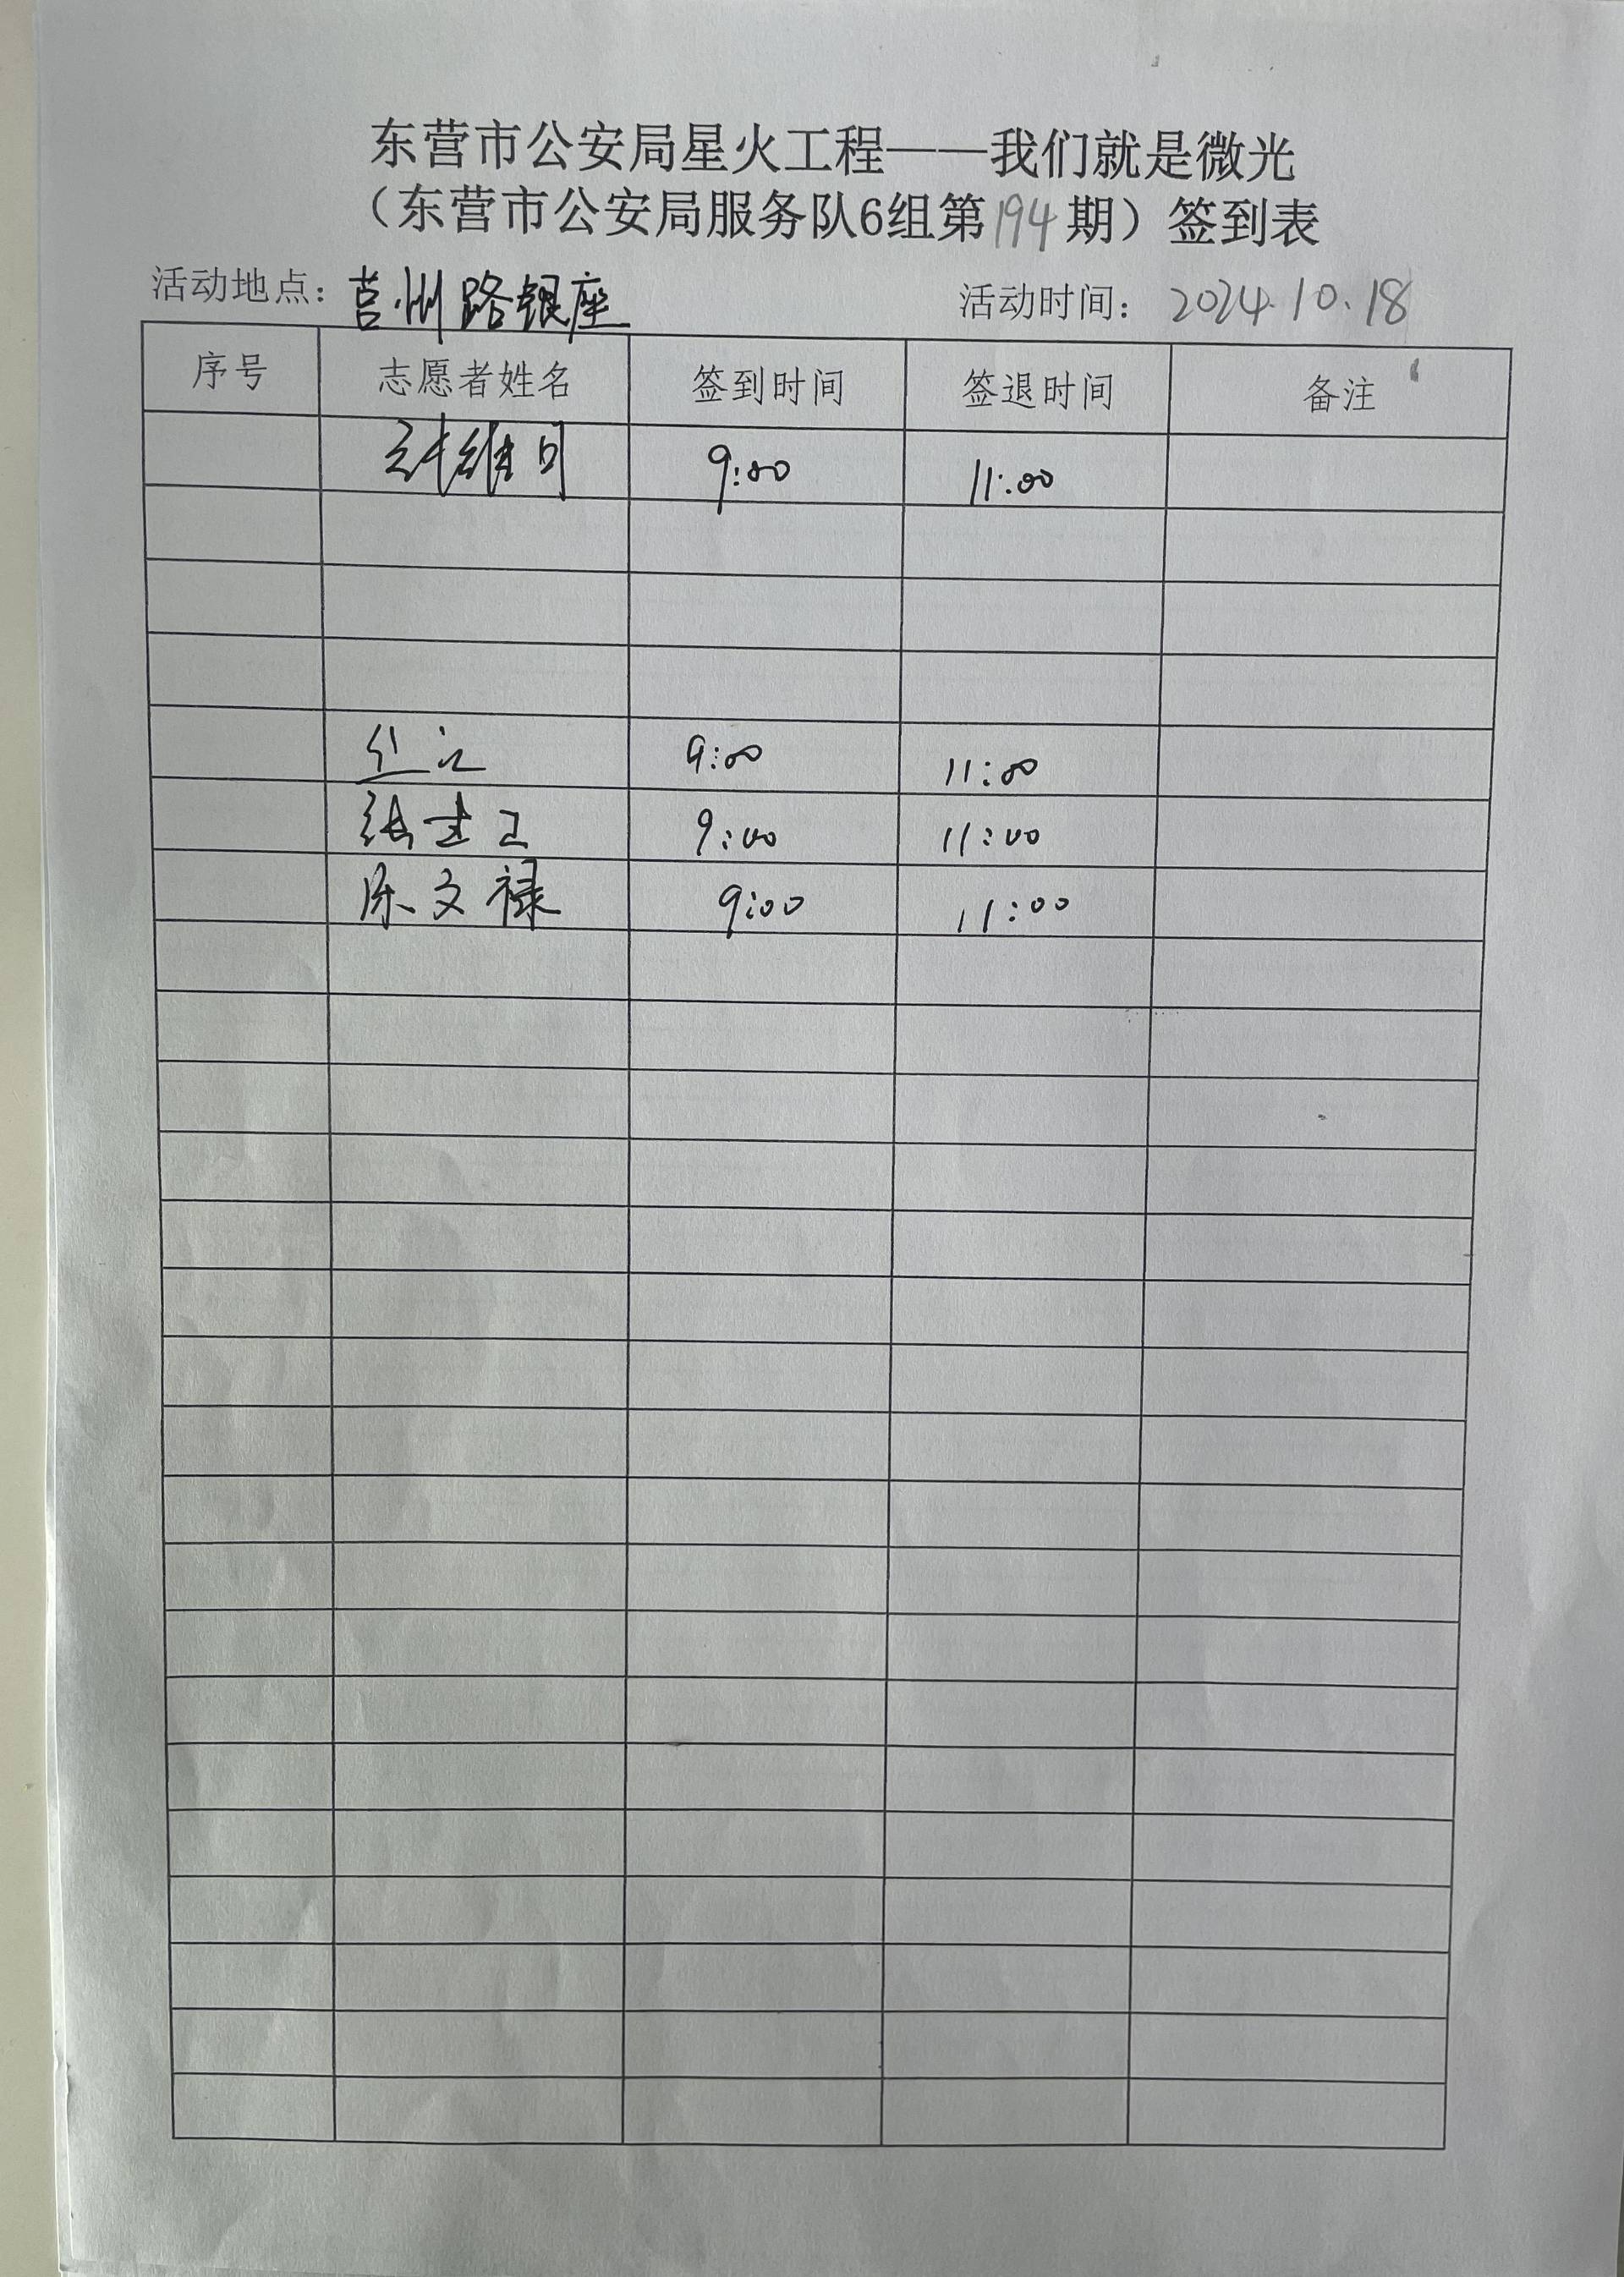 东营市公安局星火工程——我们就是微光
（东营市公安局服务队6组第194期）签到表
活动地点：莒州路银座 活动时间： 2024.10.18
序号 志愿者姓名 签到时间 签退时间 备注
9:00 11:00
9:00 11:00
9:00 11:00
陈文禄 9:00 11:00